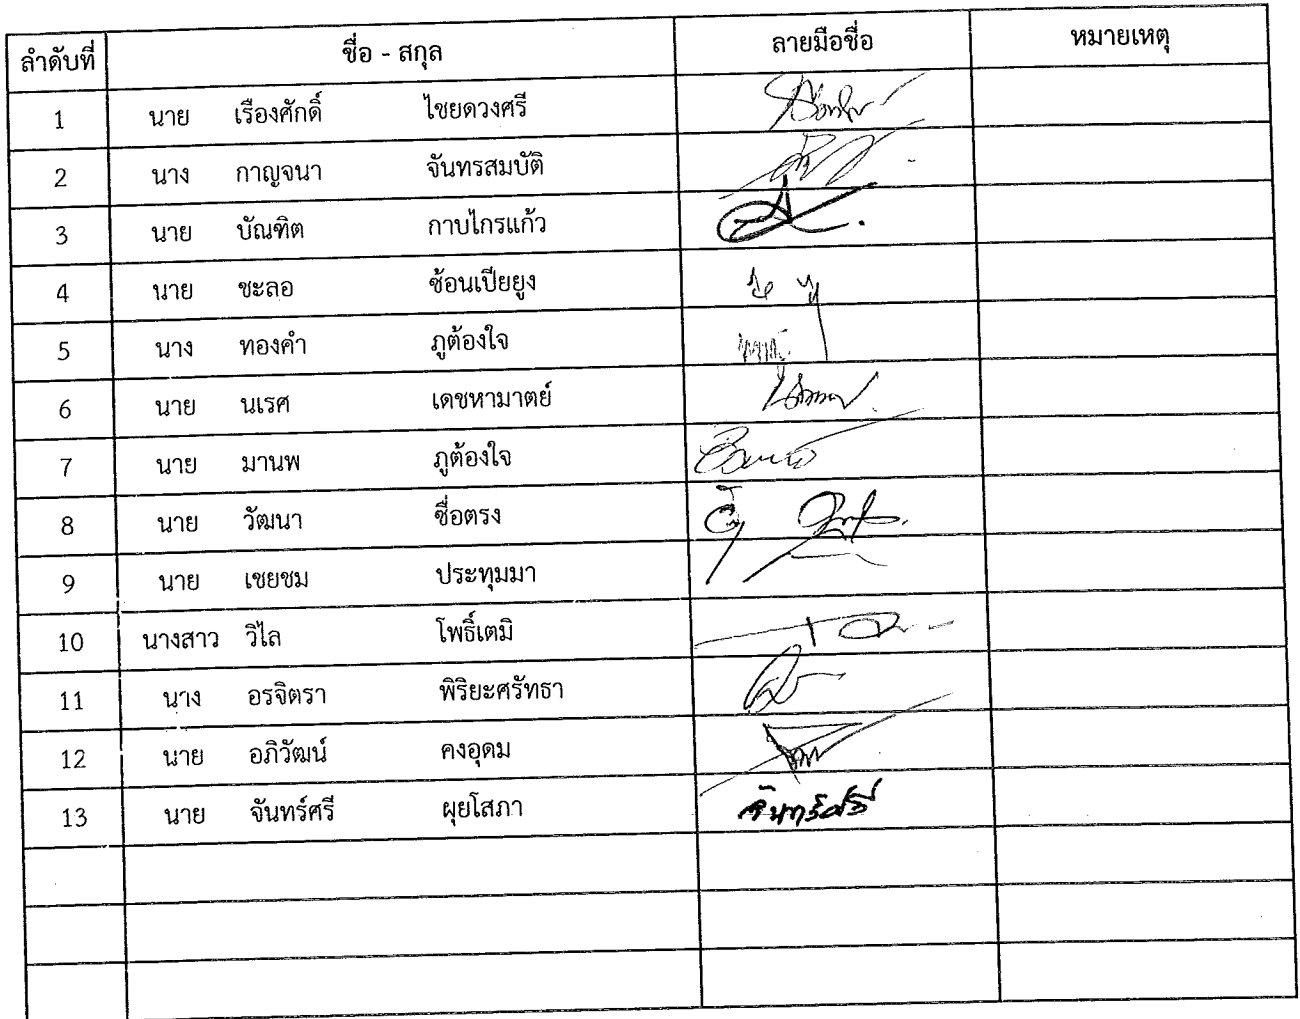 ลำดับที่ ชื่อ - สกุล ลายมือชื่อ หมายเหตุ
1 นาย เรืองศักดิ์ ไชยดวงศรี
2 นาง กาญจนา จันทรสมบัติ
3 นาย บัณฑิต กาบไกรแก้ว
4 นาย ชะลอ ซ้อนเปียยูง
5 นาง ทองคำ ภูต้องใจ
6 นาย นเรศ เดชหามาตย์
7 นาย มานพ ภูต้องใจ
8 นาย วัฒนา ซื่อตรง
9 นาย เชยชม ประทุมมา
10 นางสาว วิไล โพธิ์เตมิ
11 นาง อรจิตรา พิริยะศรัทธา
12 นาย อภิวัฒน์ คงอุดม
13 นาย จันทร์ศรี ผุยโสภา จันทร์ศรี